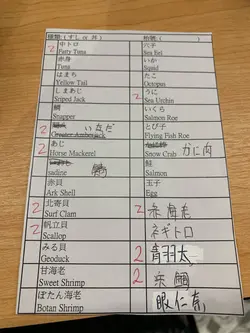 種類: (すし or 丼)
枱號: (
2 中トロ
Fatty Tuna
穴子
Sea Eel
赤身
Tuna
いか
Squid
はまち
Yellow Tail
たこ
Octopus
しまあじ
Sriped Jack
2 うに
Sea Urchin
鯛
Snapper
いくら
Salmon Roe
Greater Amberjack いなだ
とび子
Flying Fish Roe
2 あじ
Horse Mackerel
Snow Crab かに肉
sadine 鯛
鮭
Salmon
赤貝
Ark Shell
玉子
Egg
2 北寄貝
Surf Clam
2 赤海老
2 帆立貝
Scallop
ネギトロ
みる貝
Geoduck
2 青羽太
甘海老
Sweet Shrimp
2 赤鯛
ぼたん海老
Botan Shrimp